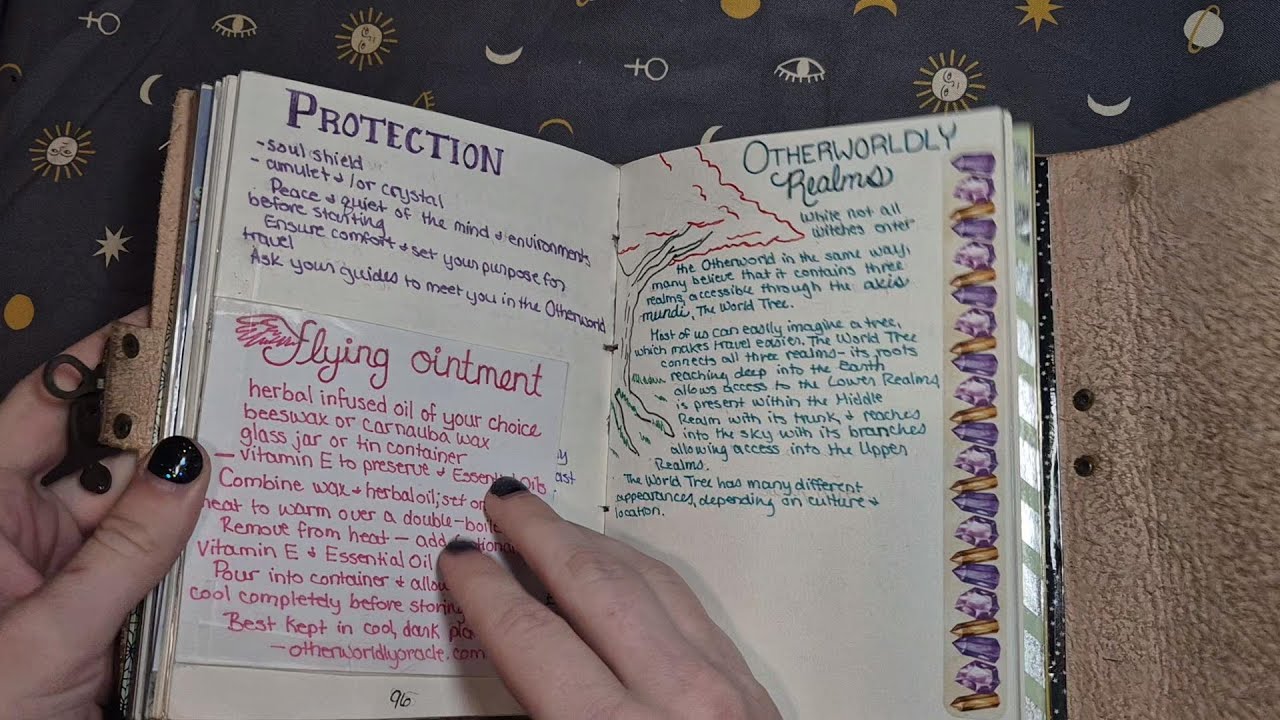 PROTECTION
-soul shield
- amulet &/or crystal
Peace & quiet of the mind & environments
before starting
Ensure comfort & set your purpose for
travel
Ask your guides to meet you in the Otherworld
flying ointment
herbal infused oil of your choice
beeswax or carnauba wax
glass jar or tin container
- vitamin E to preserve & Essential Oils
Combine wax & herbal oil; set on
heat to warm over a double-boile
Remove from heat - add
Vitamin E & Essential Oil
Pour into container & allow
cool completely before storing
Best kept in cool, dark pla
- otherworldlyoracle.com
96
OTHERWORDLY
Realms
While not all
witches enter
the Otherworld in the same way,
many believe that it contains three
realms, accessible through the axis
mundi, The World Tree.
Most of us can easily imagine a tree,
which makes travel easier. The World Tree
connects all three realms - its roots
reaching deep into the Earth
allows access to the Lower Realms,
is present within the Middle
Realm with its trunk, & reaches
into the sky with its branches
allowing access into the Upper
Realms.
The World Tree has many different
appearances, depending on culture &
location.